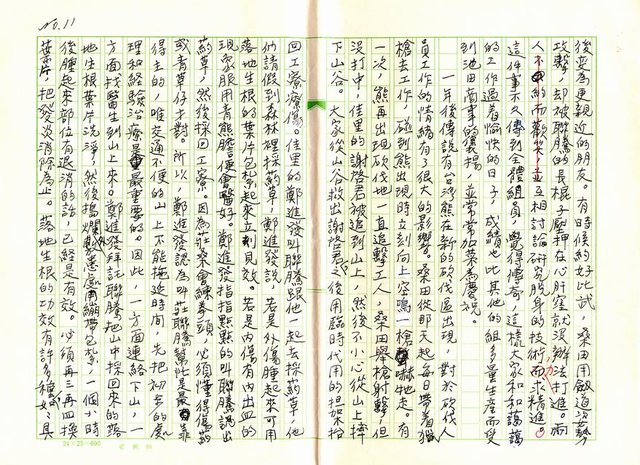 No. 11
後變為更親近的朋友。有時候約好比試，桑田用飯道姿勢
攻擊，却被聯騰的長棍子壓押在心肝窪就沒辦法打進。兩
人不約而歡笑，並互相討論研究股身的技術而求精進。
這件事不久傳到全體組員，覺得傳奇，這樣大家和和藹藹
的工作過着愉快的日子，成績也比其他的組多量生產而受
到池田商事的褒揚，並常常加菜為慶祝。
一年後傳說有台灣熊在新的砍伐區出現，對於砍伐人
員工作的情緒有了很大的影響。桑田從那天起每日帶着獵
槍去工作，碰到熊出現時立刻向上空鳴一槍嚇牠走。有
一次，熊再出現砍伐地一直追擊工人，桑田舉槍射擊，但
沒打中，佳里的謝啓君被追到山上，然後不小心從山上摔
下山谷。大家從山谷救出謝啓君之後用臨時代用的担架抬
回工寮療傷。佳里的鄭進發叫聯騰跟他一起去採葯草，他
們請假到森林裡採葯草，鄭進發說：若是外傷腫起來可用
落地生根的葉片包紮起來立刻見效。若是內傷有內出血的
現象服用青熊膽便會醫好。鄭進發指指點點的叫聯騰認出
葯草，然後採回工寮。因為莊桑會練拳頭，必須懂得傷葯
或青草仔才對。所以，鄭進發認為叫莊聯騰幫忙是最靠
得主的，唯交通不便的山上不能拖延時間，先把初步的處
理和經驗治療是最重要的。因此，一方面連絡下山，一
方面找醫生到山上來。鄭進發拜託聯騰把山中採回來的落
地生根葉片洗淨，然後搗爛患處用繃帶包紮，一個小時
後腫起來部位有退消的話，已經是有效。必須再三再四換
葉片，把發炎消除為止。落地生根的功效有許多種如：具
24×25=600